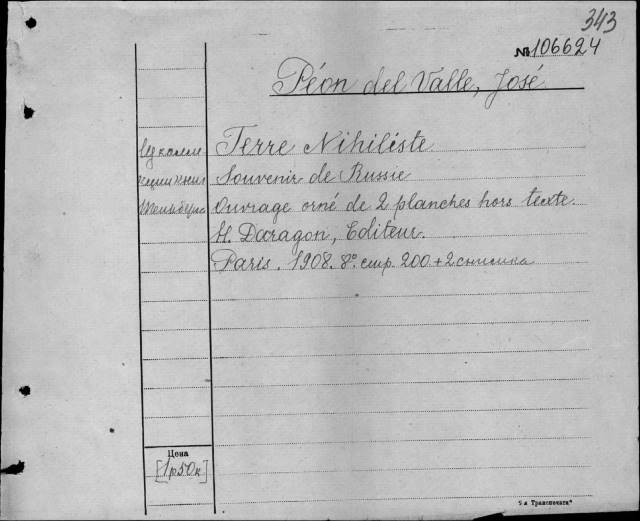 343
№ 106624
Péon del Valle, José
Из коллек Terre Nihiliste
ции книг Souvenir de Russie
Ouvrage orné de 2 planches hors texte.
H. Daragon, Editeur.
Paris. 1908. 8° стр. 200 + 2 снимка
Цена
[1р50к]
5-я Транспечать"